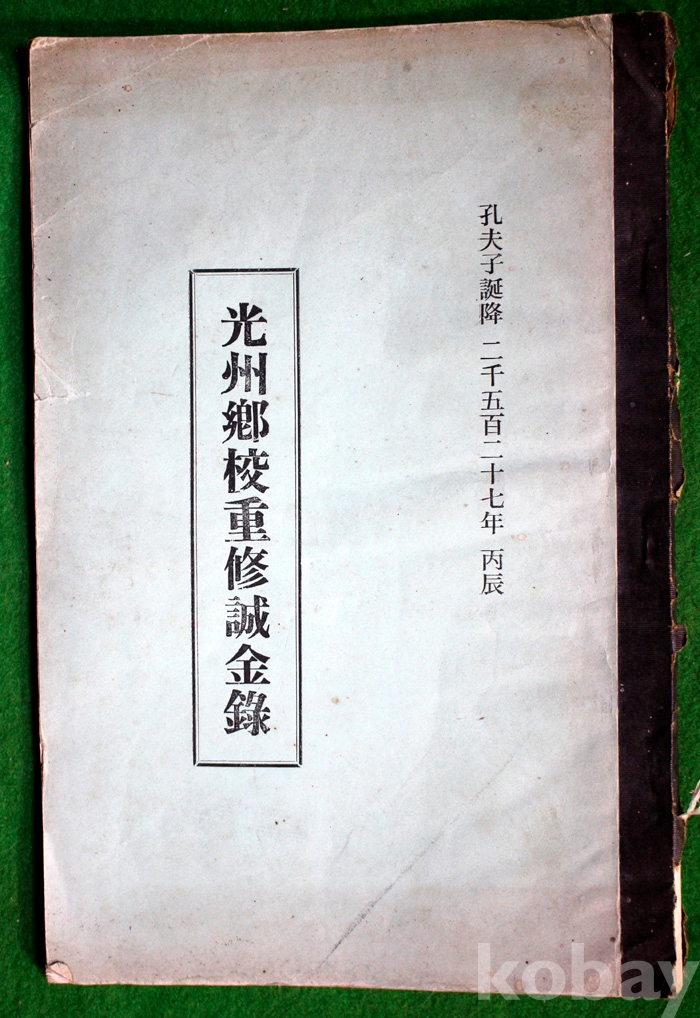 孔夫子誕降 二千五百二十七年 丙辰
光州鄕校重修誠金錄
kobay